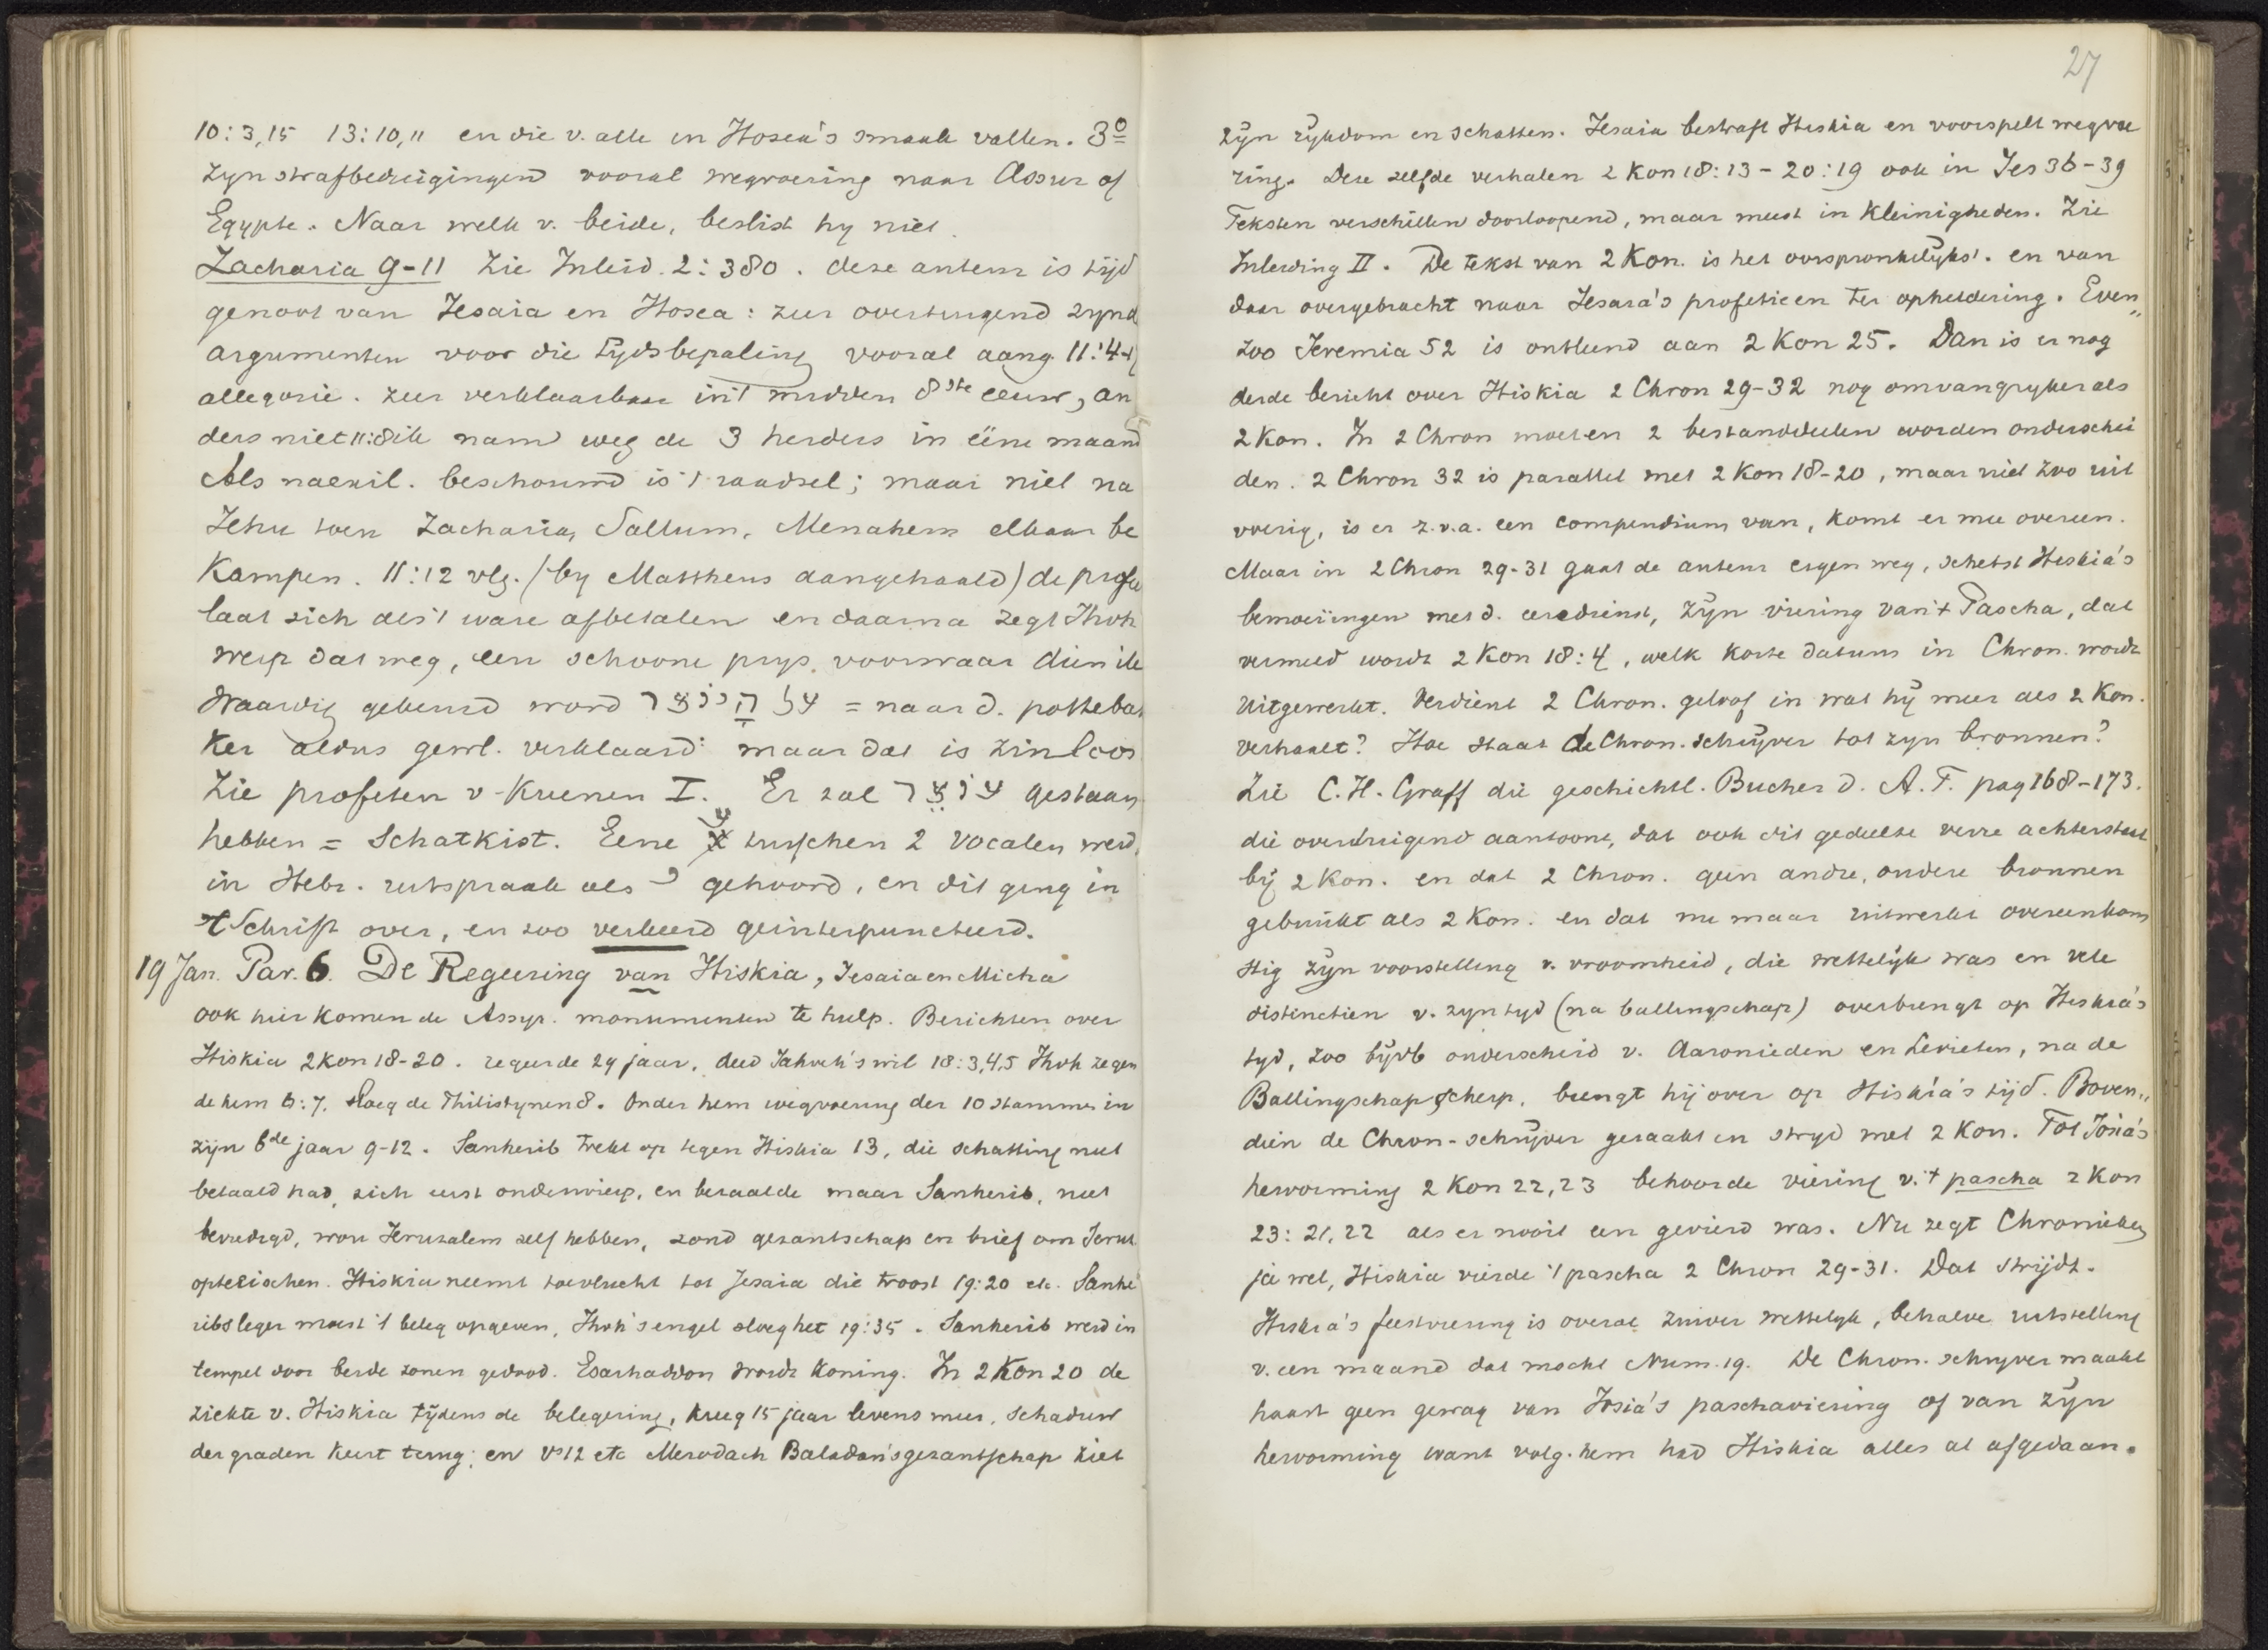 10:3,15 13:10,11 en die v. alle in Hosea's smaak vallen. 3º
zyn strafbedreigingend vooral wegvoering naar Assur of
Egypte. Naar welk v. beide, beslist hy niet.
Zacharia 9-11 Zie Inleid. 2:380. deze auteur is tijd
genoot van Jesaia en Hosea: zeer overtuigend zynd
argumenten voor die tydsbepaling vooral aang. 11:4-17
allegorie. zeer verklaarbaar in 't midden 8ste eeuw, an
ders niet 11:8 ik nam weg de 3 herders in eene maand
Als naexil. beschouwd is 't raadsel; maar niet na
Jehu toen Zacharia, Sallum, Menahem elkaar be
kampen. 11:12 vlg. (by Mattheus aangehaald) de profeet
laat zich als 't ware afbetalen en daarna zegt Jhvh
werp dat weg, een schoone prys, voorwaar dien ik
waardig gekeurd word אל היוצר = naar d. pottebak
ker aldus gewl. verklaard: maar dat is zinloos
Zie profeten v. Kuenen I. Er zal אוצר gestaan
hebben = Schatkist. Eene א tusschen 2 vocalen werd
in Hebr. uitspraak als י gehoord, en dit ging in
't Schrift over, en zoo verkeerd geinterpuncteerd.
19 Jan. Par. 6. De Regeering van Hiskia, Jesaia en Micha
ook hier komen de Assyr. monumenten te hulp. Berichten over
Hiskia 2 Kon 18-20. regeerde 29 jaar, deed Jahveh's wil 18:3,4,5 Jhvh zegen
de hem 6:7. Sloeg de Philistynen 8. Onder hem wegvoering der 10 stammen in
zijn 6de jaar 9-12. Sanherib trekt op tegen Hiskia 13, die schatting niet
betaald had, zich eerst onderwierp, en betaalde maar Sanherib, niet
bevredigd, wou Jeruzalem zelf hebben, zond gezantschap en brief om Jeruz.
opteëischen. Hiskia neemt toevlucht tot Jesaia die troost 19:20 etc. Sanhe
ribs leger moest 't beleg opgeven, Jhvh's engel sloeg het 19:35. Sanherib werd in
tempel door beide zonen gedood. Esarhaddon wordt koning. In 2 Kon 20 de
ziekte v. Hiskia tijdens de belegering, kreeg 15 jaar levens meer, schaduw
der graden keert terug; en vs 12 etc Merodach Baladan's gezantschap ziet
27
zijn rijkdom en schatten. Jesaia bestraft Hiskia en voorspelt wegvoe
ring. Deze zelfde verhalen 2 Kon 18:13-20:19 ook in Jes 36-39
Teksten verschillen doorloopend, maar meest in kleinigheden. Zie
Inleiding II. De tekst van 2 Kon. is het oorspronkelijkst. en van
daar overgebracht naar Jesaia's profetieen ter opheldering. Even"
zoo Jeremia 52 is ontleend aan 2 Kon 25. Dan is er nog
derde bericht over Hiskia 2 Chron 29-32 nog omvangryker als
2 Kon. In 2 Chron moeten 2 bestanddeelen worden onderschei
den. 2 Chron 32 is parallel met 2 Kon 18-20, maar niet zoo uit
voerig, is er z.v.a. een compendium van, komt er mee overeen.
Maar in 2 Chron 29-31 gaat de auteur eigen weg, schetst Hiskia's
bemoeiingen met d. eeredienst, zijn viering van 't Pascha, dat
vermeld wordt 2 Kon 18:4, welk korte datum in Chron. wordt
uitgewerkt. Verdient 2 Chron. geloof in wat hij meer als 2 Kon.
verhaalt? Hoe staat de Chron. schrijver tot zyn bronnen?
Zie C.H. Graff die geschichtl. Bucher d. A.T. pag 168-173.
die overtuigend aantoont, dat ook dit gedeelte verre achterstaat
bij 2 Kon. en dat 2 Chron. geen andre, ondere bronnen
gebruikt als 2 Kon. en dat nu maar uitwerkt overeenkom
stig zijn voorstelling v. vroomheid, die wettelijk was en vele
distinctien v. zyn tyd (na ballingschap) overbrengt op Hiskia's
tyd, zoo bijvb onderscheid v. Aaronieden en Levieten, na de
Ballingschap scherp, brengt hij over op Hiskia's tijd. Boven"
dien de Chron-schrijver geraakt in stryd met 2 Kon. Tot Josia's
hervorming 2 Kon 22,23 behoorde viering v. 't pascha 2 Kon
23:21,22 als er nooit een gevierd was. Nu zegt Chronieken
ja wel, Hiskia vierde 't pascha 2 Chron 29-31. Dat strijdt.
Hiskia's feestviering is overal zuiver wettelyk, behalve uitstelling
v. een maand dat mocht Num. 19. De Chron. schryver maakt
haast geen gewag van Josia's paschaviering of van zijn
hervorming want volg. hem had Hiskia alles al afgedaan.